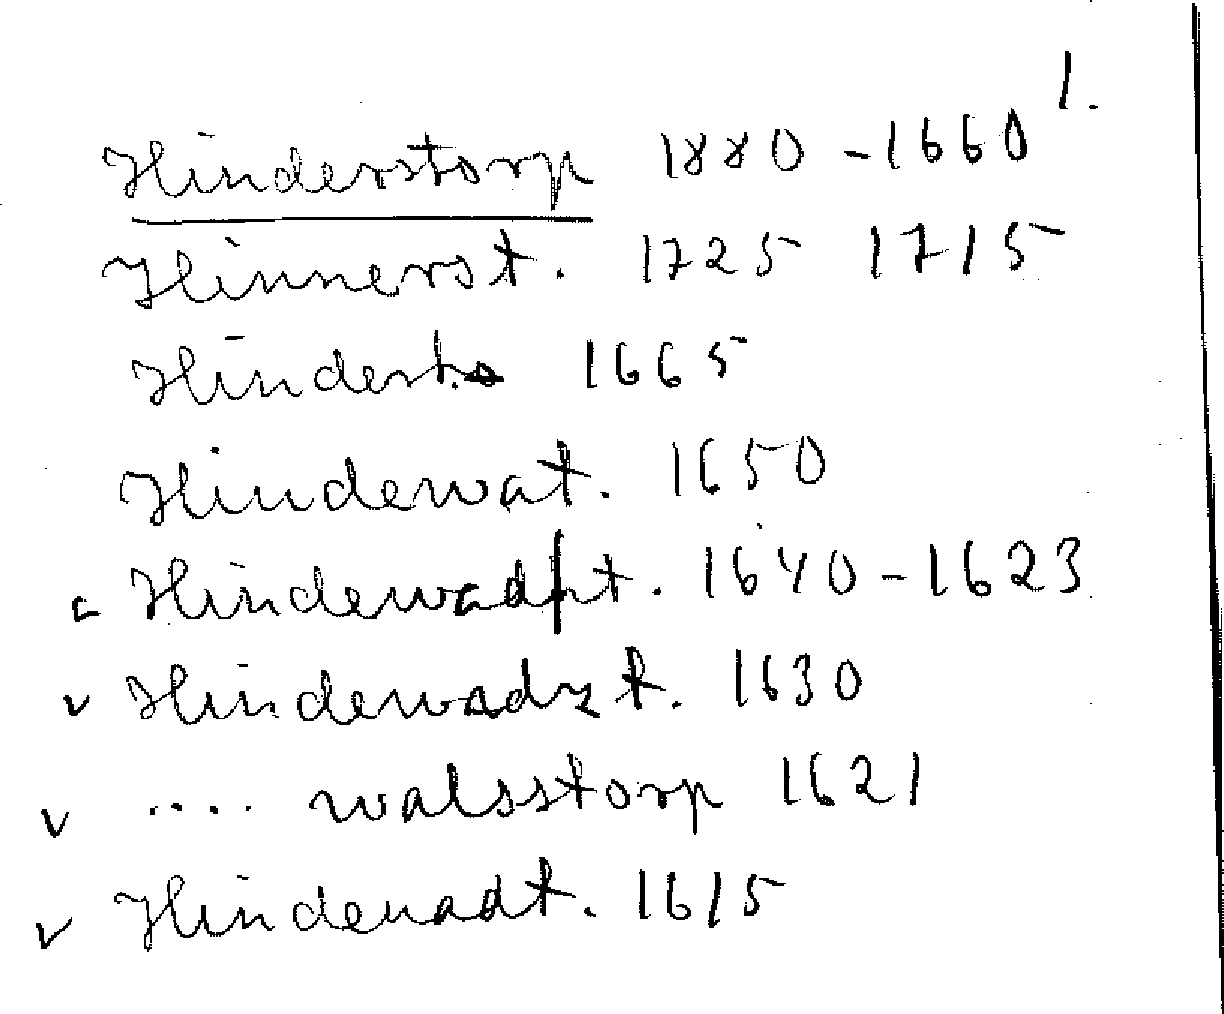 1.
Hinderstorp 1880-1660
Hinnerst. 1725 1715
1665
Hindewat. 1650
Hindewadpt. 1640-1623
v Hindewadzt. 1630
v .... walsstorp 1621
v Hindeuadt. 1615